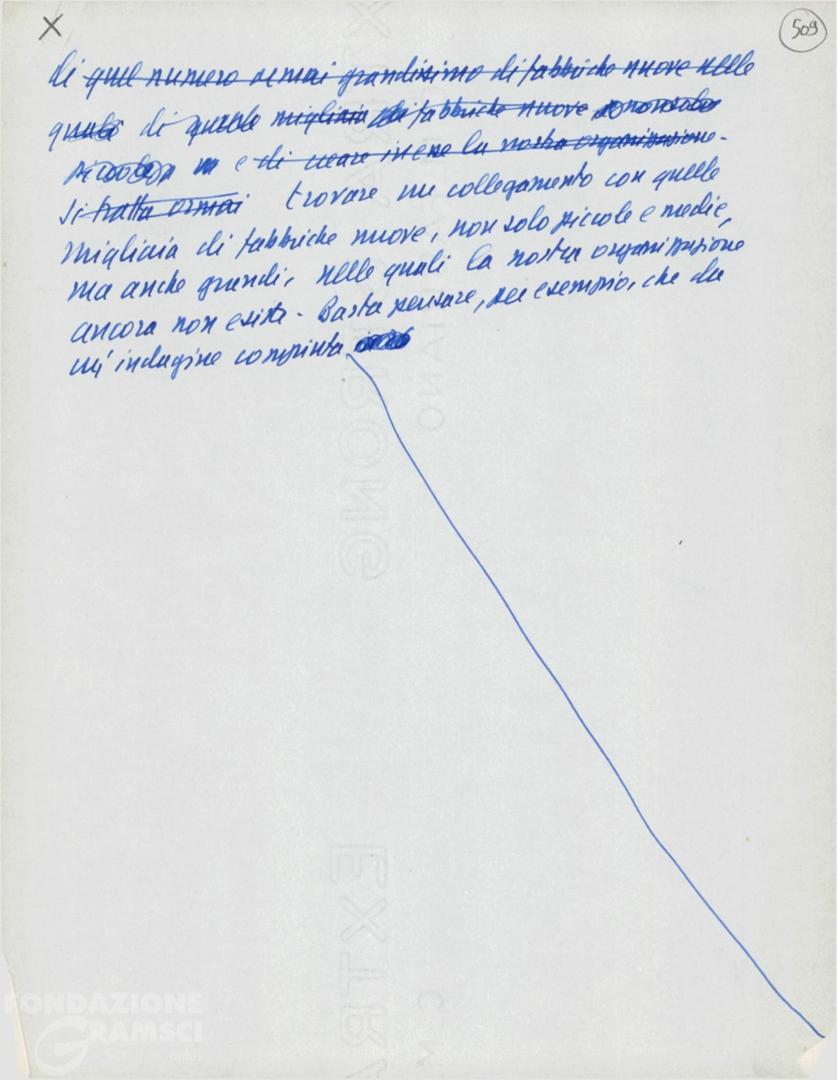 X
509
di quel numero ormai grandissimo di fabbriche nuove nelle
quali di quelle migliaia di fabbriche nuove non solo
piccole e di creare invece la nostra organizzazione.
Si tratta ormai trovare un collegamento con quelle
migliaia di fabbriche nuove, non solo piccole e medie,
ma anche grandi, nelle quali la nostra organizzazione
ancora non esiste. Basta pensare, per esempio, che da
un'indagine compiuta
EXTRA STRONG
EXTRA
FONDAZIONE
GRAMSCI
onlus